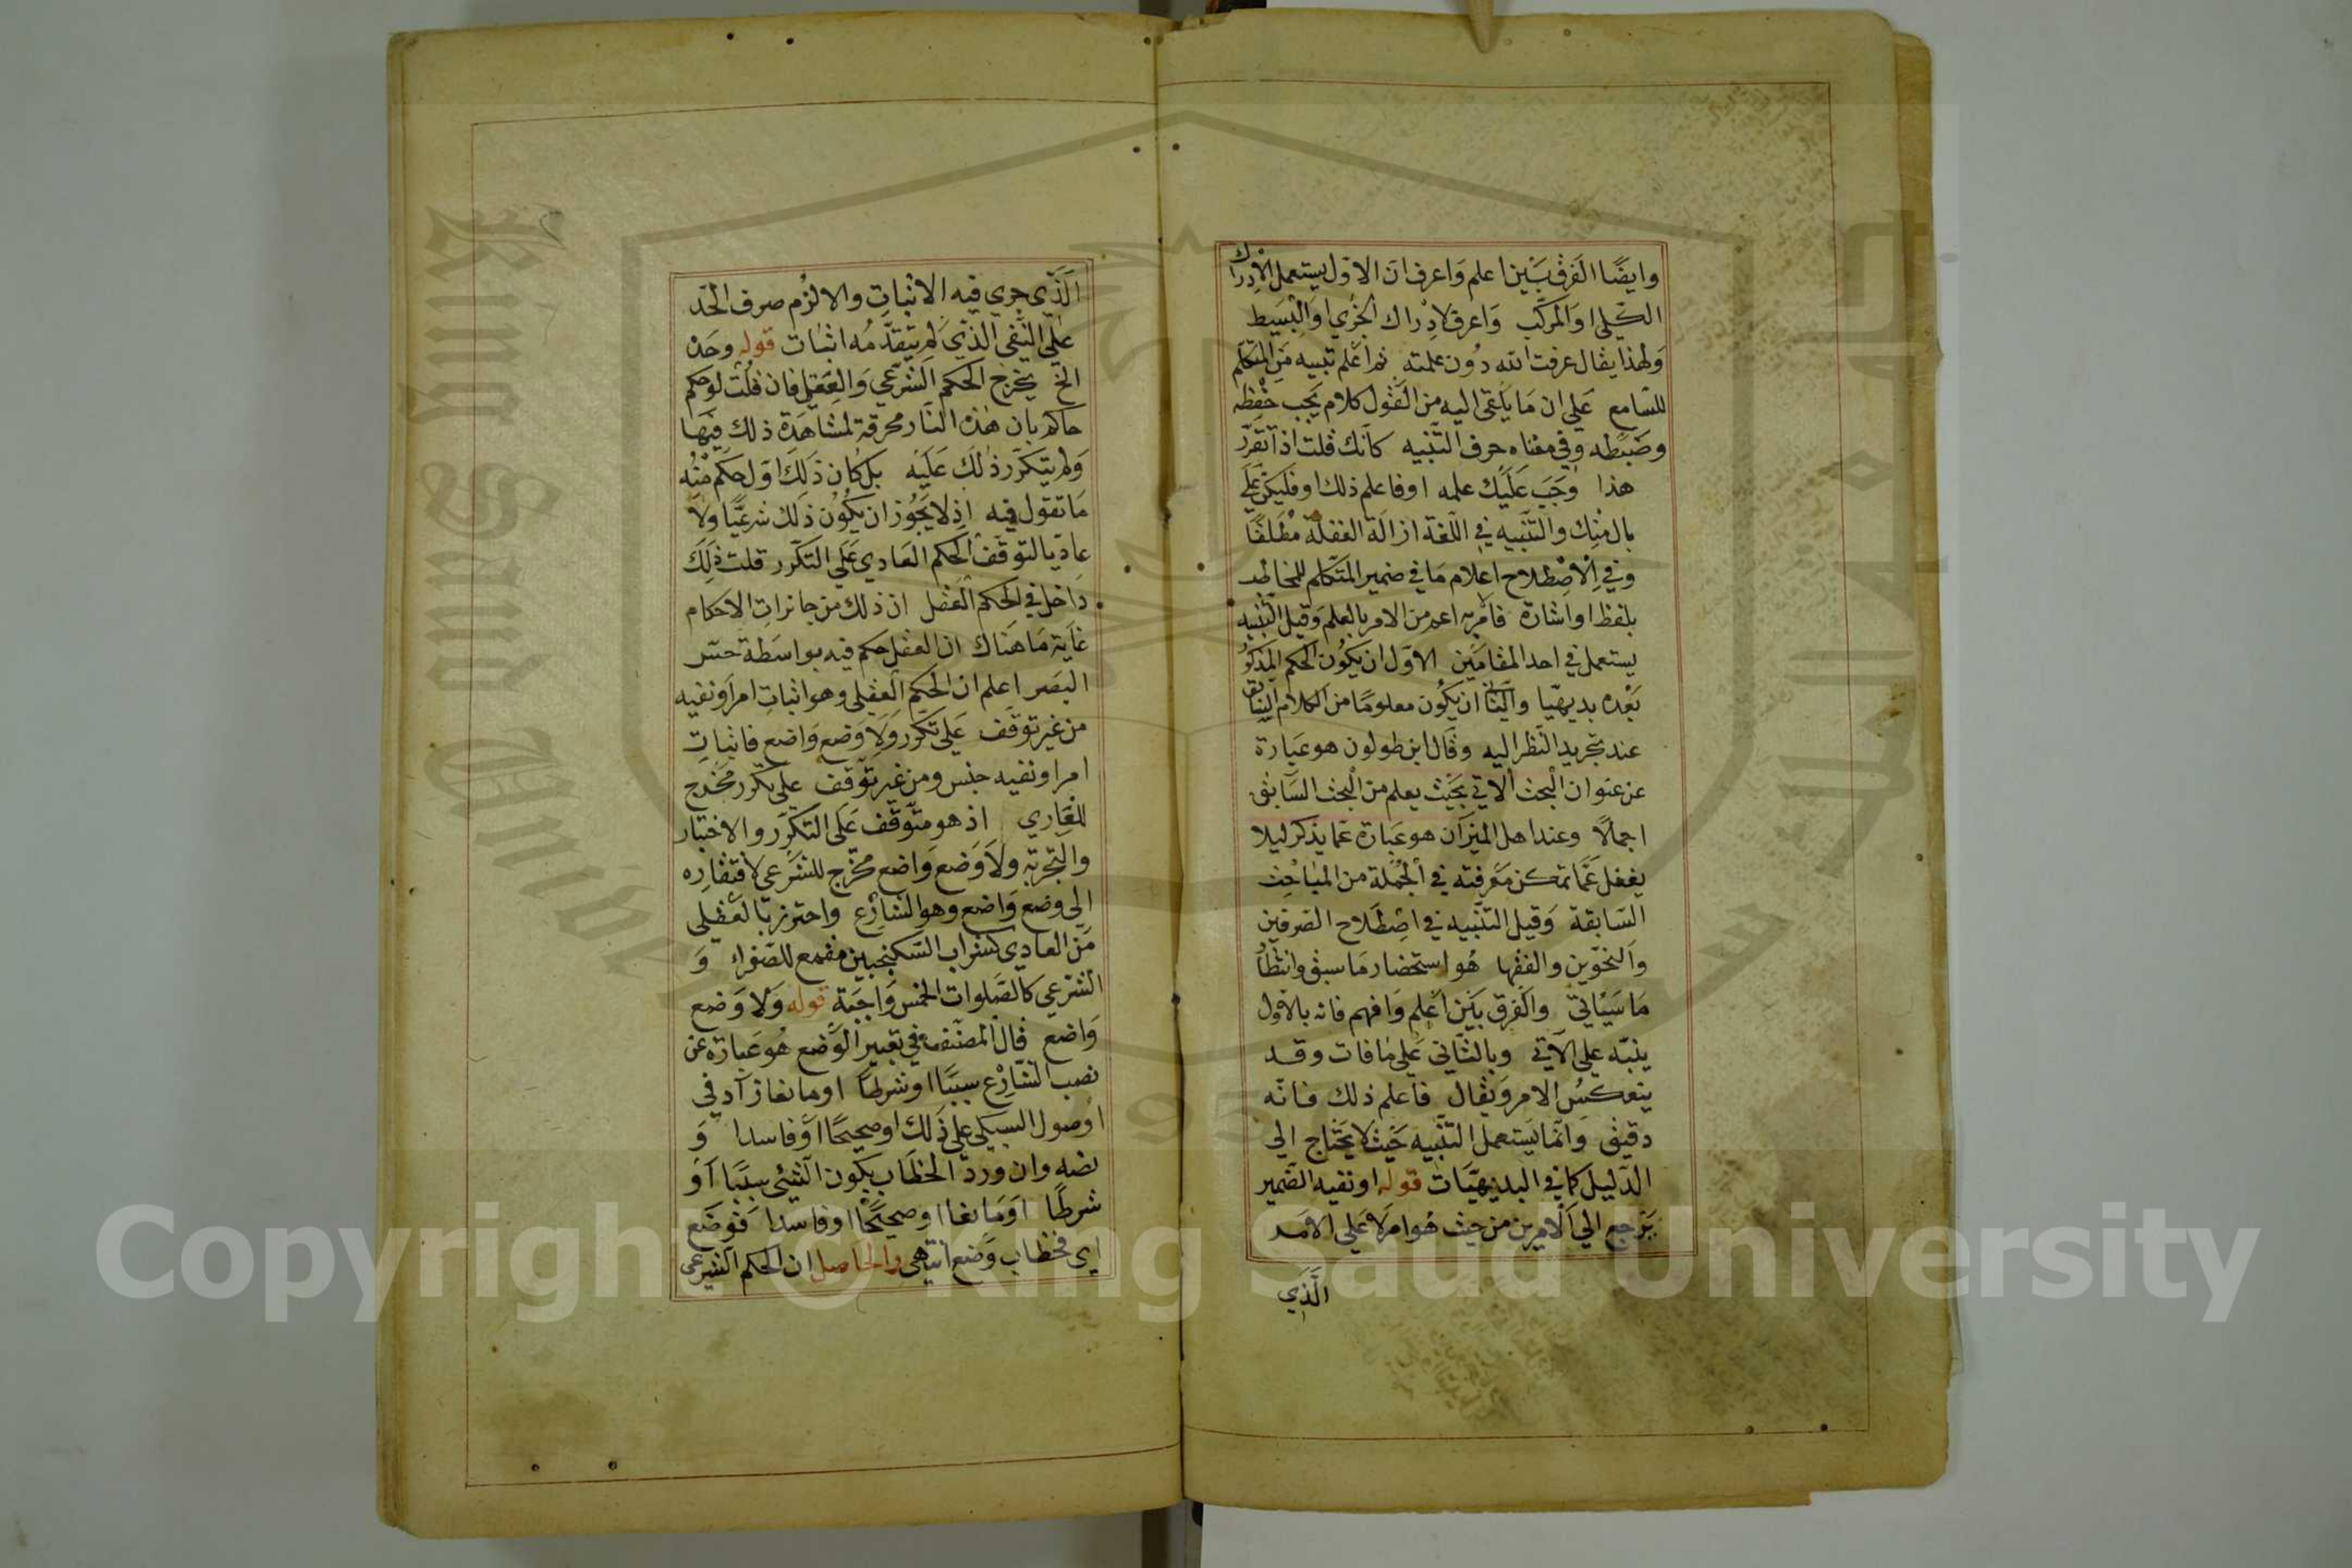 وايضًا الفرق بين اعلم واعرف ان الاول يستعمل لادراك
الكلي او المركب واعرف لادراك الجزي او البسيط
ولهذا يقال عرفت الله دون علمته ثم اعلم تنبيه من المتكلم
للسامع على ان ما يلقى اليه من القول كلام يجب حفظه
وضبطه وفي معناه حرف التنبيه كانك قلت اذا تقرر
هذا وجب عليك علمه او فاعلم ذلك او فليكن على
بال منك والتنبيه في اللغة ازالة الغفلة مطلقًا
وفي الاصطلاح اعلام ما في ضمير المتكلم للمخاطب
بلفظ او اشارة اعم من الامر بالعلم وقيل التنبيه
يستعمل في احد المقامين الاول ان يكون الحكم المذكور
بعده بديهيا والثاني ان يكون معلومًا من الكلام السابق
عند تجريد النظر اليه وقال ابن طولون هو عبارة
عن عنوان البحث الاتي بحيث يعلم من البحث السابق
اجمالًا وعند اهل الميزان هو عبارة عما يذكر ليلا
يغفل عما تمكن معرفته في الجملة من المباحث
السابقة وقيل التنبيه في اصطلاح الصرفين
والنحوين والفقها هو استحضار ما سبق وانتظار
ما سياتي والفرق بين اعلم وافهم فانه بالاول
ينبه على الاتي وبالثاني على مافات وقد
ينعكس الامر ويقال فاعلم ذلك فانه
دقيق وانما يستعمل التنبيه حيث لا يحتاج الى
الدليل كما في البديهيات قوله او نفيه الضمير
يرجع الى الامر من حيث هو امر لا على الامر
الذي
الذي جري فيه الاثبات والا لزم صرف الحد
على النفى الذي لم يتقدمه اثبات قوله وحده
الخ يخرج الحكم الشرعي والعقلي فان قلت لو حكم
حاكم بان هذه النار محرقة لمشاهدة ذلك فيها
ولم يتكرر ذلك عليه بل كان ذلك اول حكم منه
ما تقول فيه اذ لا يجوز ان يكون ذلك شرعيًا ولا
عاديا لتوقف الحكم العادي على التكرر قلت ذلك
داخل في الحكم العقلي ان ذلك من جائزات الاحكام
غاية ما هناك ان العقل حكم فيه بواسطة حس
البصر اعلم ان الحكم العقلي وهو اثبات امر او نفيه
من غير توقف على تكرر ولا وضع واضع فاثبات
امر او نفيه جنس ومن غير توقف على تكرر مخرج
للعادي اذ هو متوقف على التكرر والاختبار
والتجربة ولا وضع واضع مخرج للشرعي لافتقاره
الى وضع واضع وهو الشارع واحترز بالعقلي
من العادي كشراب السكنجبين مقمع للصفراء و
الشرعي كالصلوات الخمس واجبة قوله ولا وضع
واضع قال المصنف في تعبير الوضع هو عبارة عن
نصب الشارع سببًا او شرطًا او مانعا زاد في
اصول السبكي على ذلك او صحيحًا او فاسدا و
نصه وان ورد الخطاب بكون الشئي سببًا او
شرطًا او مانعا او صحيحًا او فاسدا فوضع
اي فخطاب وضع انتهى والحاصل ان الحكم الشرعي
Copyright © King Saud University
King Saud University